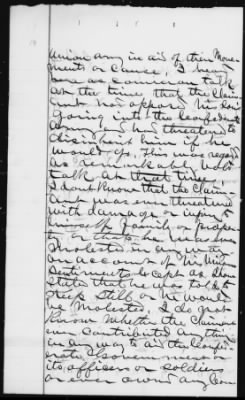 union army in aid of their move
ments or cause, I heard
some as common talk
at the time that the Claim
ant not oppose his son
Going into the Confederate
Army & he threatened to
disinherit him if he
would go. This was regard
as remarkable
talk at that time.
I dont Know that the Claim
ant was ever threatened
with damage or injury to
himself family or proper
ty or that he was ever
Molested in any way
on account of his Union
Sentiments except as above
state that he was told to
Keep Still or he would
be Molested. I do not
Know whether the Claimant
ever contributed any thing
in any way to aid the Confed
erate Government or
its officers or soldiers
or ever owned any Con